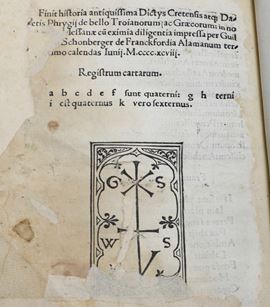 Finit historia antiquissima Dictys Cretensis atq; Da
retis Phrygij de bello Troianorum; ac Græcorum in no
Messanæ cū eximia diligentia impressa per Guil
Schonberger de Franckfordia Alamanum ter
mo calendas Iunij. M.cccc.xcviij.
Registrum cartarum.
a b c d e f sunt quaterni: g h terni
i est quaternus k vero sexternus.
G S
W S